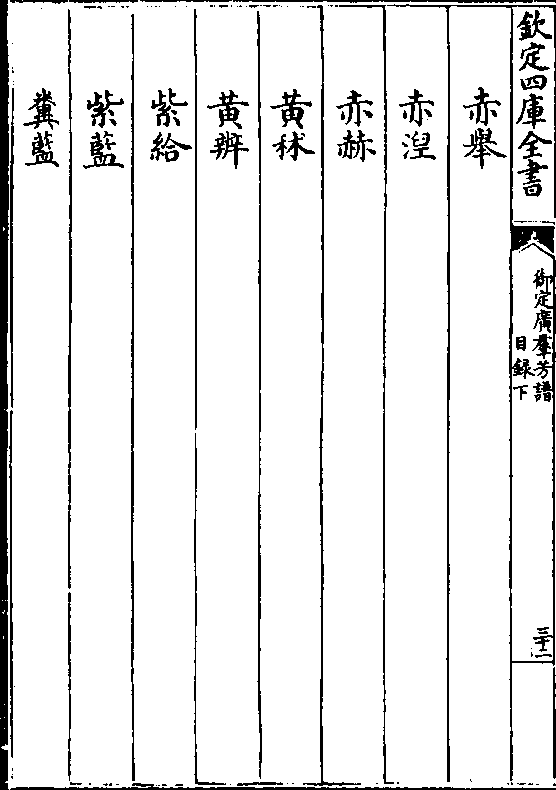 欽定四庫全書
御定廣羣芳譜
目録下
三十二
赤舉
赤涅
赤赫
黄秫
黄辨
紫給
紫藍
糞藍